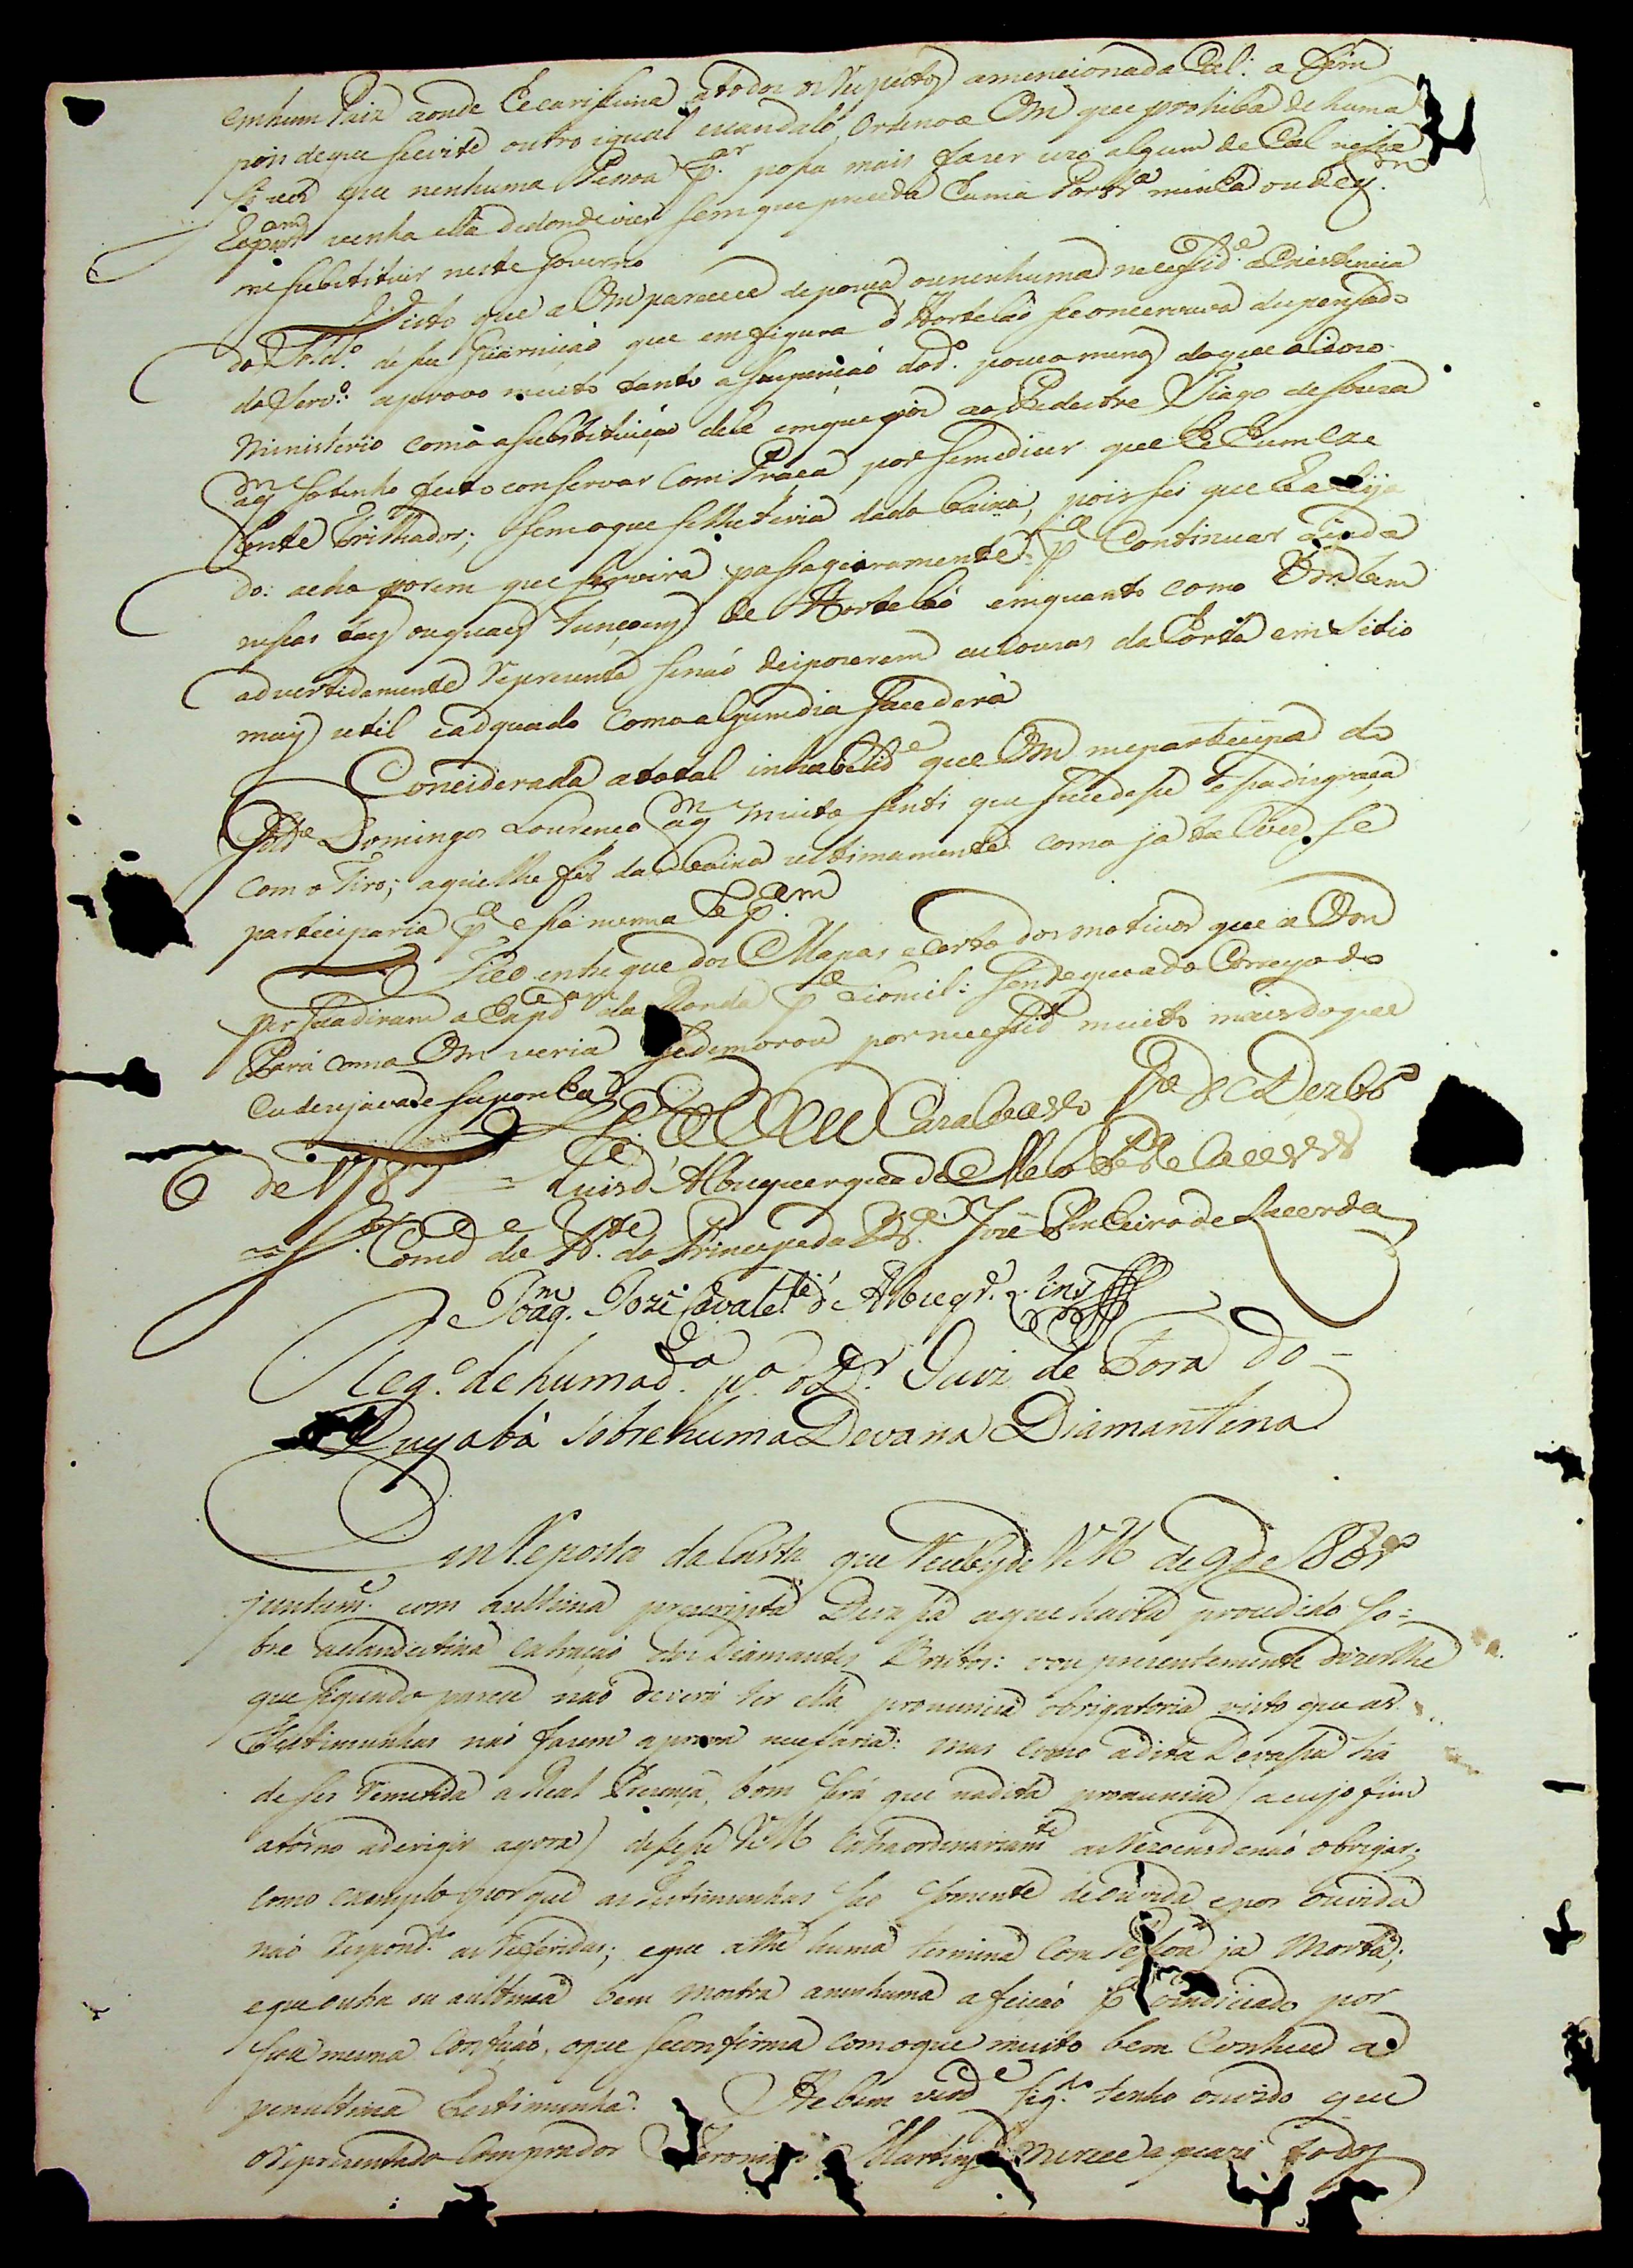 em hum Paiz aonde he carissima a todos os Respeitos a mencionada Cal: a fim
pois de que se evite outro igual escandalo, Ordeno a Vm que prohiba de huma
só vez que nenhuma Pessoa p.ar possa mais fazer uzo algum de Cal nessa
venha ella dedonde vier sem que preceda huma Port.ra minha ou de q.m
me substituir neste Governo
Visto que a Vm parecece de pouca ou nenhuma necessid.e a Existencia
do Sold.o dessa Guarnição que em figura d'Hortelaõ se concervava dispensado
do Serv.o aprovo muito tanto a suspenção do d.o pouco menos do que ocioso
Ministerio como a substituição dele em que poz ao Pedestre Tiago de Souza
a q.m só tenho feito conservar com Praça por se me dizer que he hum
Trilhador; sem o que se lhe teria dado baixa, pois sei que he Aleija
do: acho porem que servirá passageiramente p.a Continuar ainda
nessas taes ou quaes funçoens de Hortelaõ emquanto como Vm bem
advertidamente Representa senaõ dispozerem as couzas da Horta em Sitio
mais util e adquado como algum dia sucederá
Considerada a total inhabelid.e que Vm me participa do
Sold.e Domingos Lourenço a q.m muito senti que sucedesse essa disgraça
com o Tiro; aqui lhe fis dar baixa ultimamente como ja talves se
participaria p.a essa mesma
Fico entregue dos Mapas e certo dos motivos que a Vm
persuadiram a da Ronda
Pará como Vm veria se demorou por necessid.e muito mais do que
eu dezejava e supunha D.s g.e a Vm Cara Caresso de Dezbr.o
6 de 1787 = Luis d'Albuquerque de Mello Pr.a e Caceres
= S.r Com.de do F.te do Principe da B.a José Pinheiro de Lacerda
Joaq.m Jozé Cavalc.te d'Albuqr.e Lins
Reg.o de huma d.a p.a o D.r Juiz de Fora do =
Cuyabá sobre huma Devaça Diamantina
Em Reposta da Carta que Recebi de V M de 9 de 8br.o
juntam.e com a ultima prescripta Devassa a que havia procedido so=
bre a clandestina extração dos Diamantes Brutos: vou prezentemente dizerlhe
que segundo parece não deverá ter ella pronuncia obrigatoria visto que as
Testimunhas naõ fazem a prova necessaria: mas como a dita Devassa há
de ser Remetida a Real Prezença, bom será que na dita pronuncia (a cujo fim
a torno a derigir agora) dissesse V M Extraordinariam.te as Rezoens de naõ obrigar;
como exemplo porque as Testimunhas saõ somente de ouvida, e por ouvida
naõ Respond.do as Referidas; e que athe huma termina com Pessoa ja Morta;
e que outra ou a ultima bem mostra a nenhuma afeiçaõ p.a o indiciado por
sua mesma Confissaõ, o que se confirma com o que muito bem Conhece a
penultima Testimunha. He bem verd.e seg.do tenho ouvido que
o Reprezentado Comprador Jeronimo Martins merece a quazi todos